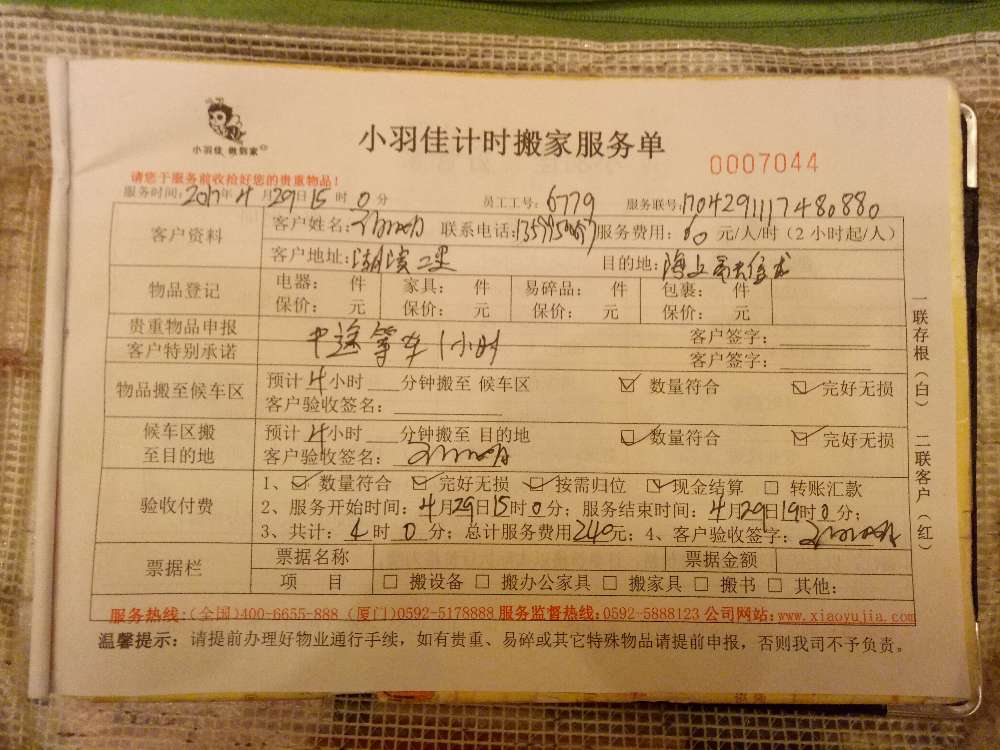 小羽佳 做到家
小羽佳计时搬家服务单
0007044
请您于服务前收拾好您的贵重物品!
服务时间:2017年4月29日15时0分 员工工号:6779 服务联号:1704291117480880
客户资料
客户姓名: 联系电话: 服务费用: 元/人/时(2小时起/人)
客户地址: 目的地:
物品登记
电器: 件 家具: 件 易碎品: 件 包裹: 件
保价: 元 保价: 元 保价: 元 保价: 元
贵重物品申报 客户签字:
客户特别承诺 中途等车1小时 客户签字:
物品搬至候车区
预计4小时 分钟搬至 候车区 ☑ 数量符合 ☑ 完好无损
客户验收签名:
候车区搬
至目的地
预计4小时 分钟搬至 目的地 ☑ 数量符合 ☑ 完好无损
客户验收签名:
验收付费
1、☑ 数量符合 ☑ 完好无损 ☑ 按需归位 ☑ 现金结算 □ 转账汇款
2、服务开始时间:4月29日15时0分;服务结束时间:4月29日19时0分;
3、共计:4时0分;总计服务费用240元;4、客户验收签字:
票据栏
票据名称 票据金额
项 目 □ 搬设备 □ 搬办公家具 □ 搬家具 □ 搬书 □ 其他:
一联存根(白) 二联客户(红)
服务热线:(全国)400-6655-888 (厦门)0592-5178888 服务监督热线:0592-5888123 公司网站:www.xiaoyujia.com
温馨提示:请提前办理好物业通行手续,如有贵重、易碎或其它特殊物品请提前申报,否则我司不予负责。